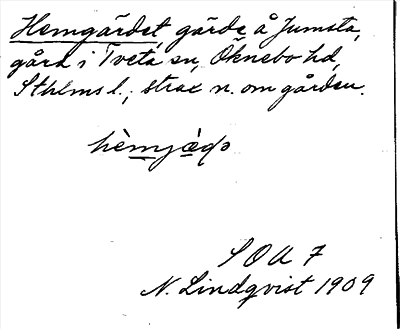 Hemgärdet, gärde å Jumsta,
gård i Tveta sn, Öknebo hd,
Sthlms l.; strax n. om gården.
hèmjæ̀ḍə
SOA 7
N. Lindqvist 1909